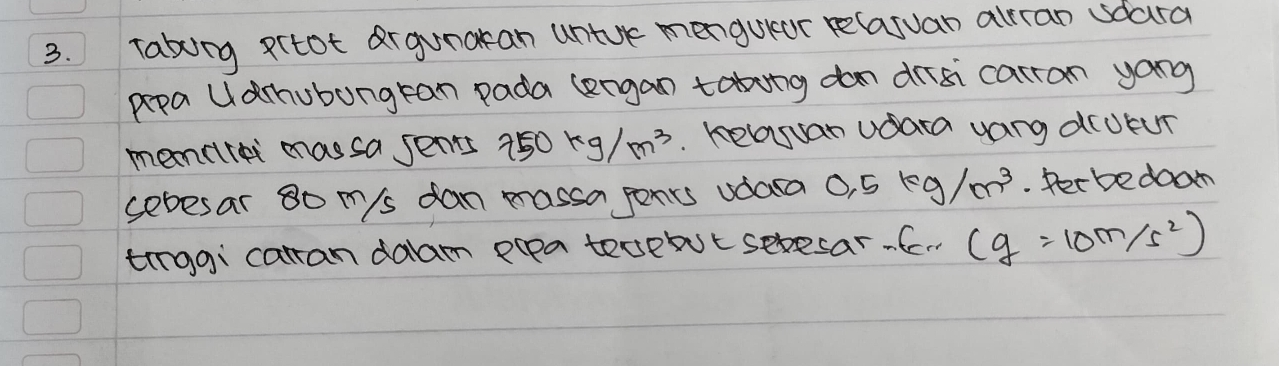 3. Tabung pitot digunakan untuk mengukur kelajuan aliran udara
pipa U dihubungkan pada lengan tabung dan diisi cairan yang
memiliki massa jenis 750 kg/m³. Kelajuan udara yang diukur
sebesar 80 m/s dan massa jenis udara 0,5 kg/m³. Perbedaan
tinggi cairan dalam pipa tersebut sebesar ... (g = 10 m/s²)